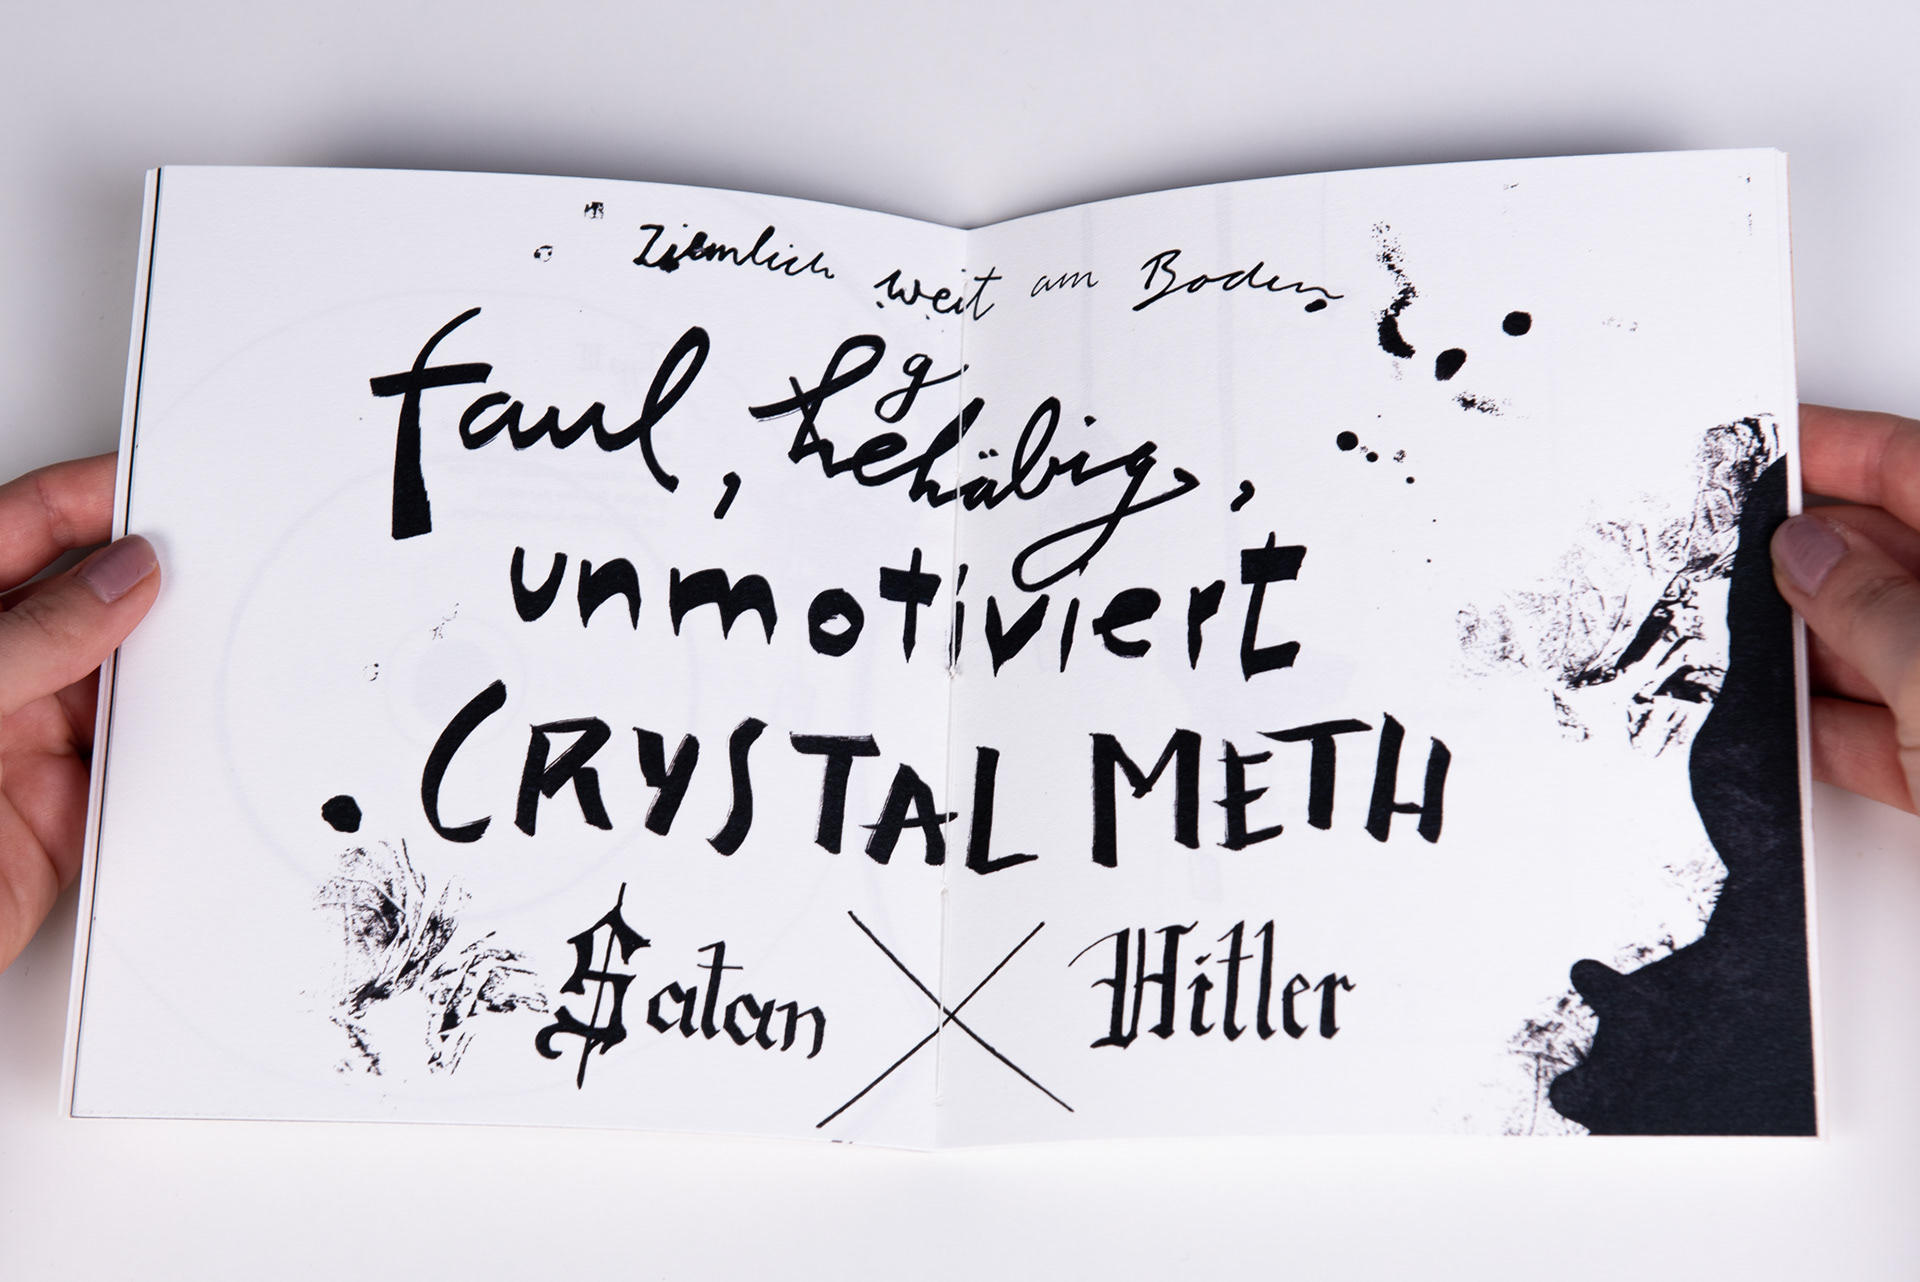 Ziemlich weit am Boden
faul, gehäbig,
unmotiviert
CRYSTAL METH
Satan X Hitler